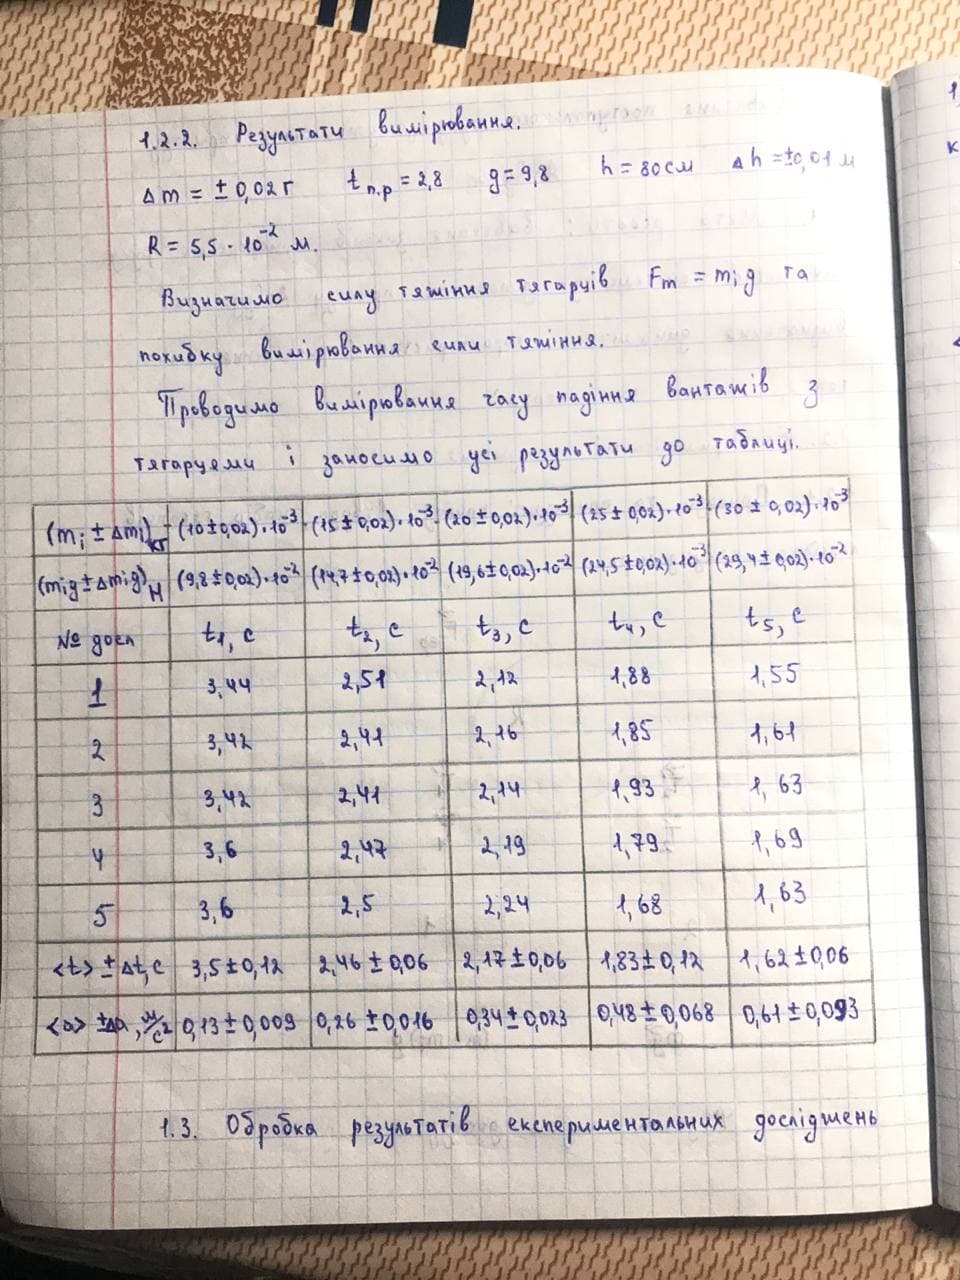 1.2.2. Результати вимірювання.
Δm = ± 0,02 г t п,р = 2,8 g = 9,8 h = 80 см Δh = ±0,01 м
R = 5,5 · 10⁻² м.
Визначимо силу тяжіння тягарців Fm = mᵢg та
похибку вимірювання сили тяжіння.
Проводимо вимірювання часу падіння вантажів з
тягарцеми і заносимо усі результати до таблиці.
(mᵢ ± Δmᵢ) кг (10 ± 0,02) · 10⁻³ (15 ± 0,02) · 10⁻³ (20 ± 0,02) · 10⁻³ (25 ± 0,02) · 10⁻³ (30 ± 0,02) · 10⁻³
(mᵢg ± Δmᵢg) Н (9,8 ± 0,02) · 10⁻² (14,7 ± 0,02) · 10⁻² (19,6 ± 0,02) · 10⁻² (24,5 ± 0,02) · 10⁻³ (29,4 ± 0,02) · 10⁻²
№ досл t₁, с t₂, с t₃, с t₄, с t₅, с
1 3,44 2,51 2,12 1,88 1,55
2 3,42 2,41 2,16 1,85 1,61
3 3,42 2,41 2,14 1,93 1,63
4 3,6 2,47 2,19 1,79 1,69
5 3,6 2,5 2,24 1,68 1,63
<t> ± Δt, с 3,5 ± 0,12 2,46 ± 0,06 2,17 ± 0,06 1,83 ± 0,12 1,62 ± 0,06
<a> ± Δa, м/с² 0,13 ± 0,009 0,26 ± 0,016 0,34 ± 0,023 0,48 ± 0,068 0,61 ± 0,093
1.3. Обробка результатів експериментальних досліджень